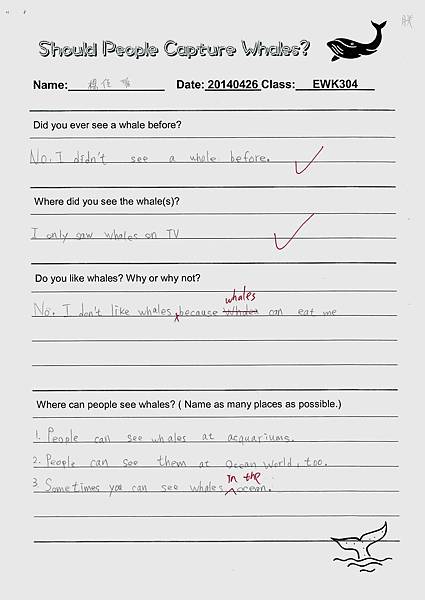 Should People Capture Whales?
Name: 楊佳 Date: 20140426 Class: EWK304
Did you ever see a whale before?
No. I didn't see a whale before.
Where did you see the whale(s)?
I only saw whales on TV
Do you like whales? Why or why not?
whales
No. I don't like whales because whales can eat me
Where can people see whales? ( Name as many places as possible.)
1. People can see whales at acquariums.
2. People can see them at Ocean World, too.
in the
3. Sometimes you can see whales ocean.